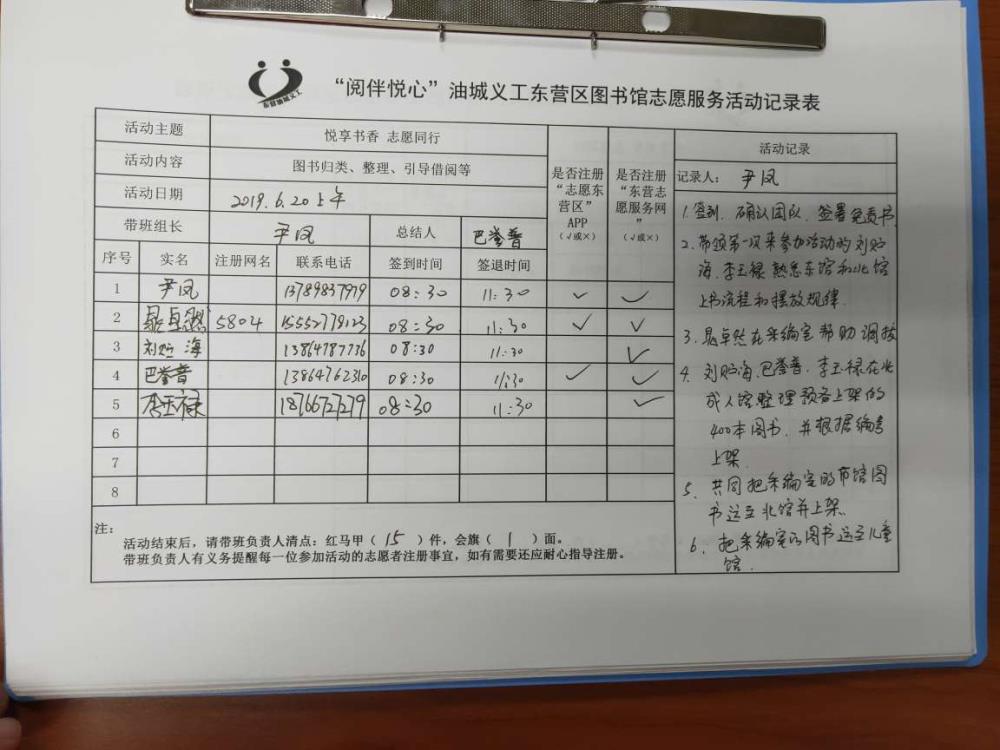 东营油城义工
“阅伴悦心”油城义工东营区图书馆志愿服务活动记录表
活动主题 悦享书香 志愿同行
活动内容 图书归类、整理、引导借阅等
活动日期 2019.6.20上午
带班组长 尹凤 总结人 巴誉普
是否注册“志愿东营区”APP（√或×）
是否注册“东营志愿服务网”（√或×）
序号 实名 注册网名 联系电话 签到时间 签退时间
1 尹凤 13789837979 08:30 11:30 ✓ ✓
2 卓然 5804 15552779123 08:30 11:30 ✓ ✓
3 刘贮海 13864787736 08:30 11:30 ✓
4 巴誉普 13864762310 08:30 11:30 ✓ ✓
5 李玉禄 18766727279 08:30 11:30 ✓
6
7
8
注：
活动结束后，请带班负责人清点：红马甲（ 15 ）件，会旗（ 1 ）面。
带班负责人有义务提醒每一位参加活动的志愿者注册事宜，如有需要还应耐心指导注册。
活动记录
记录人： 尹凤
1.签到、确认团队、签署免责书
2.带领第一次来参加活动的刘贮
海、李玉禄熟悉东馆和北馆
上书流程和摆放规律.
3.卓然在采编室帮助调拨
4.刘贮海、巴誉普、李玉禄在北
成人馆整理预备上架的
400本图书，并根据编号
上架.
5.共同把采编室的市馆图
书送至北馆并上架.
6.把采编室的图书送至儿童
馆.